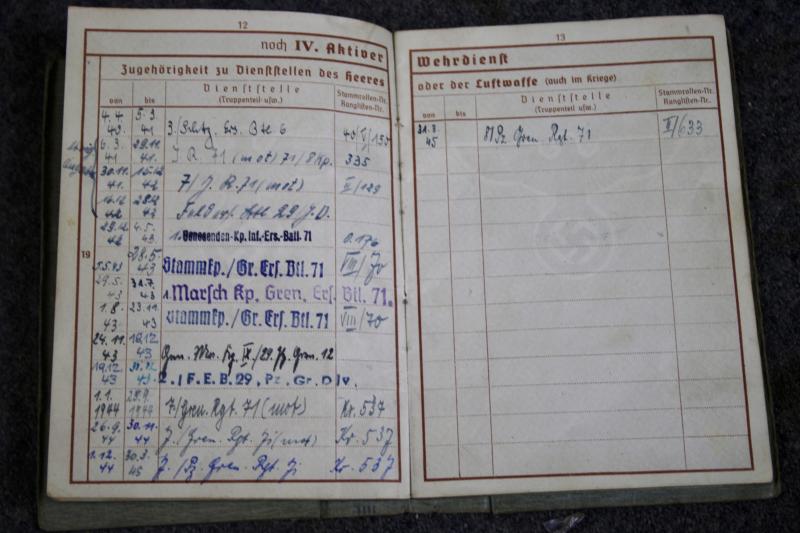 12
noch IV. Aktiver
Zugehörigkeit zu Dienststellen des Heeres
von
bis
Dienststelle
(Truppenteil usw.)
Stammrollen-Nr.
Ranglisten-Nr.
4.4. 5.3.
43. 41 3. Schtz. Ers. Btl. 6
6.3. 29.11
41 41. J.R. 71 (mot) 71/8 Kp. 335
30.11 15.12
41. 42 7/J.R. 71 (mot) II/129
16.12
42 43 29 J.D.
29.12 4.5.
42 43 1. Genesenden-Kp. Inf.-Ers.-Batl. 71
19
28.5.
5.5.43 43 Stammkp./Gr. Ers. Btl. 71 VIII/70
29.5. 31.7.
43 43 1. Marsch Kp. Gren. Ers. Btl. 71.
1.8 23.11
43 43 Stammkp./Gr. Ers. Btl. 71 VIII/70
24.11. 18.12
43 43
19.12
43 43 2. / F. E. B. 29, Pz. Gr. Div.
1.1. 25.9.
1944 1944 7/Gren. Rgt. 71 (mot) Kr. 537
26.9. 30.11.
44 44 7./Gren. Rgt. 71 (mot) Kr. 537
1.12. 30.3.
44 45 7./Pz. Gren. Rgt. 71 Kr. 537
13
Wehrdienst
oder der Luftwaffe (auch im Kriege)
von
bis
Dienststelle
(Truppenteil usw.)
Stammrollen-Nr.
Ranglisten-Nr.
31.3.
45 Pz. Gren. Rgt. 71 II/633